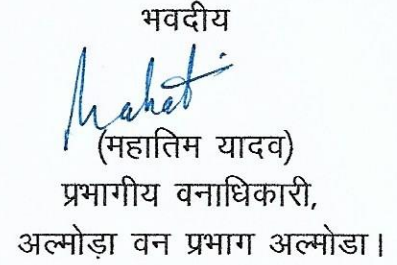 भवदीय
Mahat
(महातिम यादव)
प्रभागीय वनाधिकारी,
अल्मोड़ा वन प्रभाग अल्मोडा।